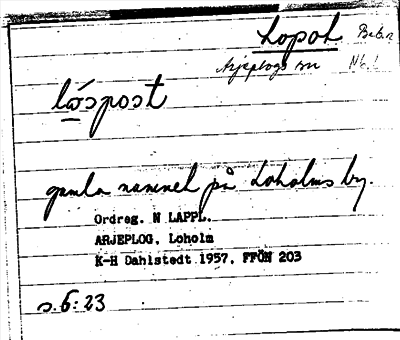 Lopot
Arjeplogs sn
lòspost
gamla namnet på Loholms by.
Ordreg. N LAPPL.
ARJEPLOG, Loholm
K-H Dahlstedt 1957, FFÖN 203
s. 6: 23